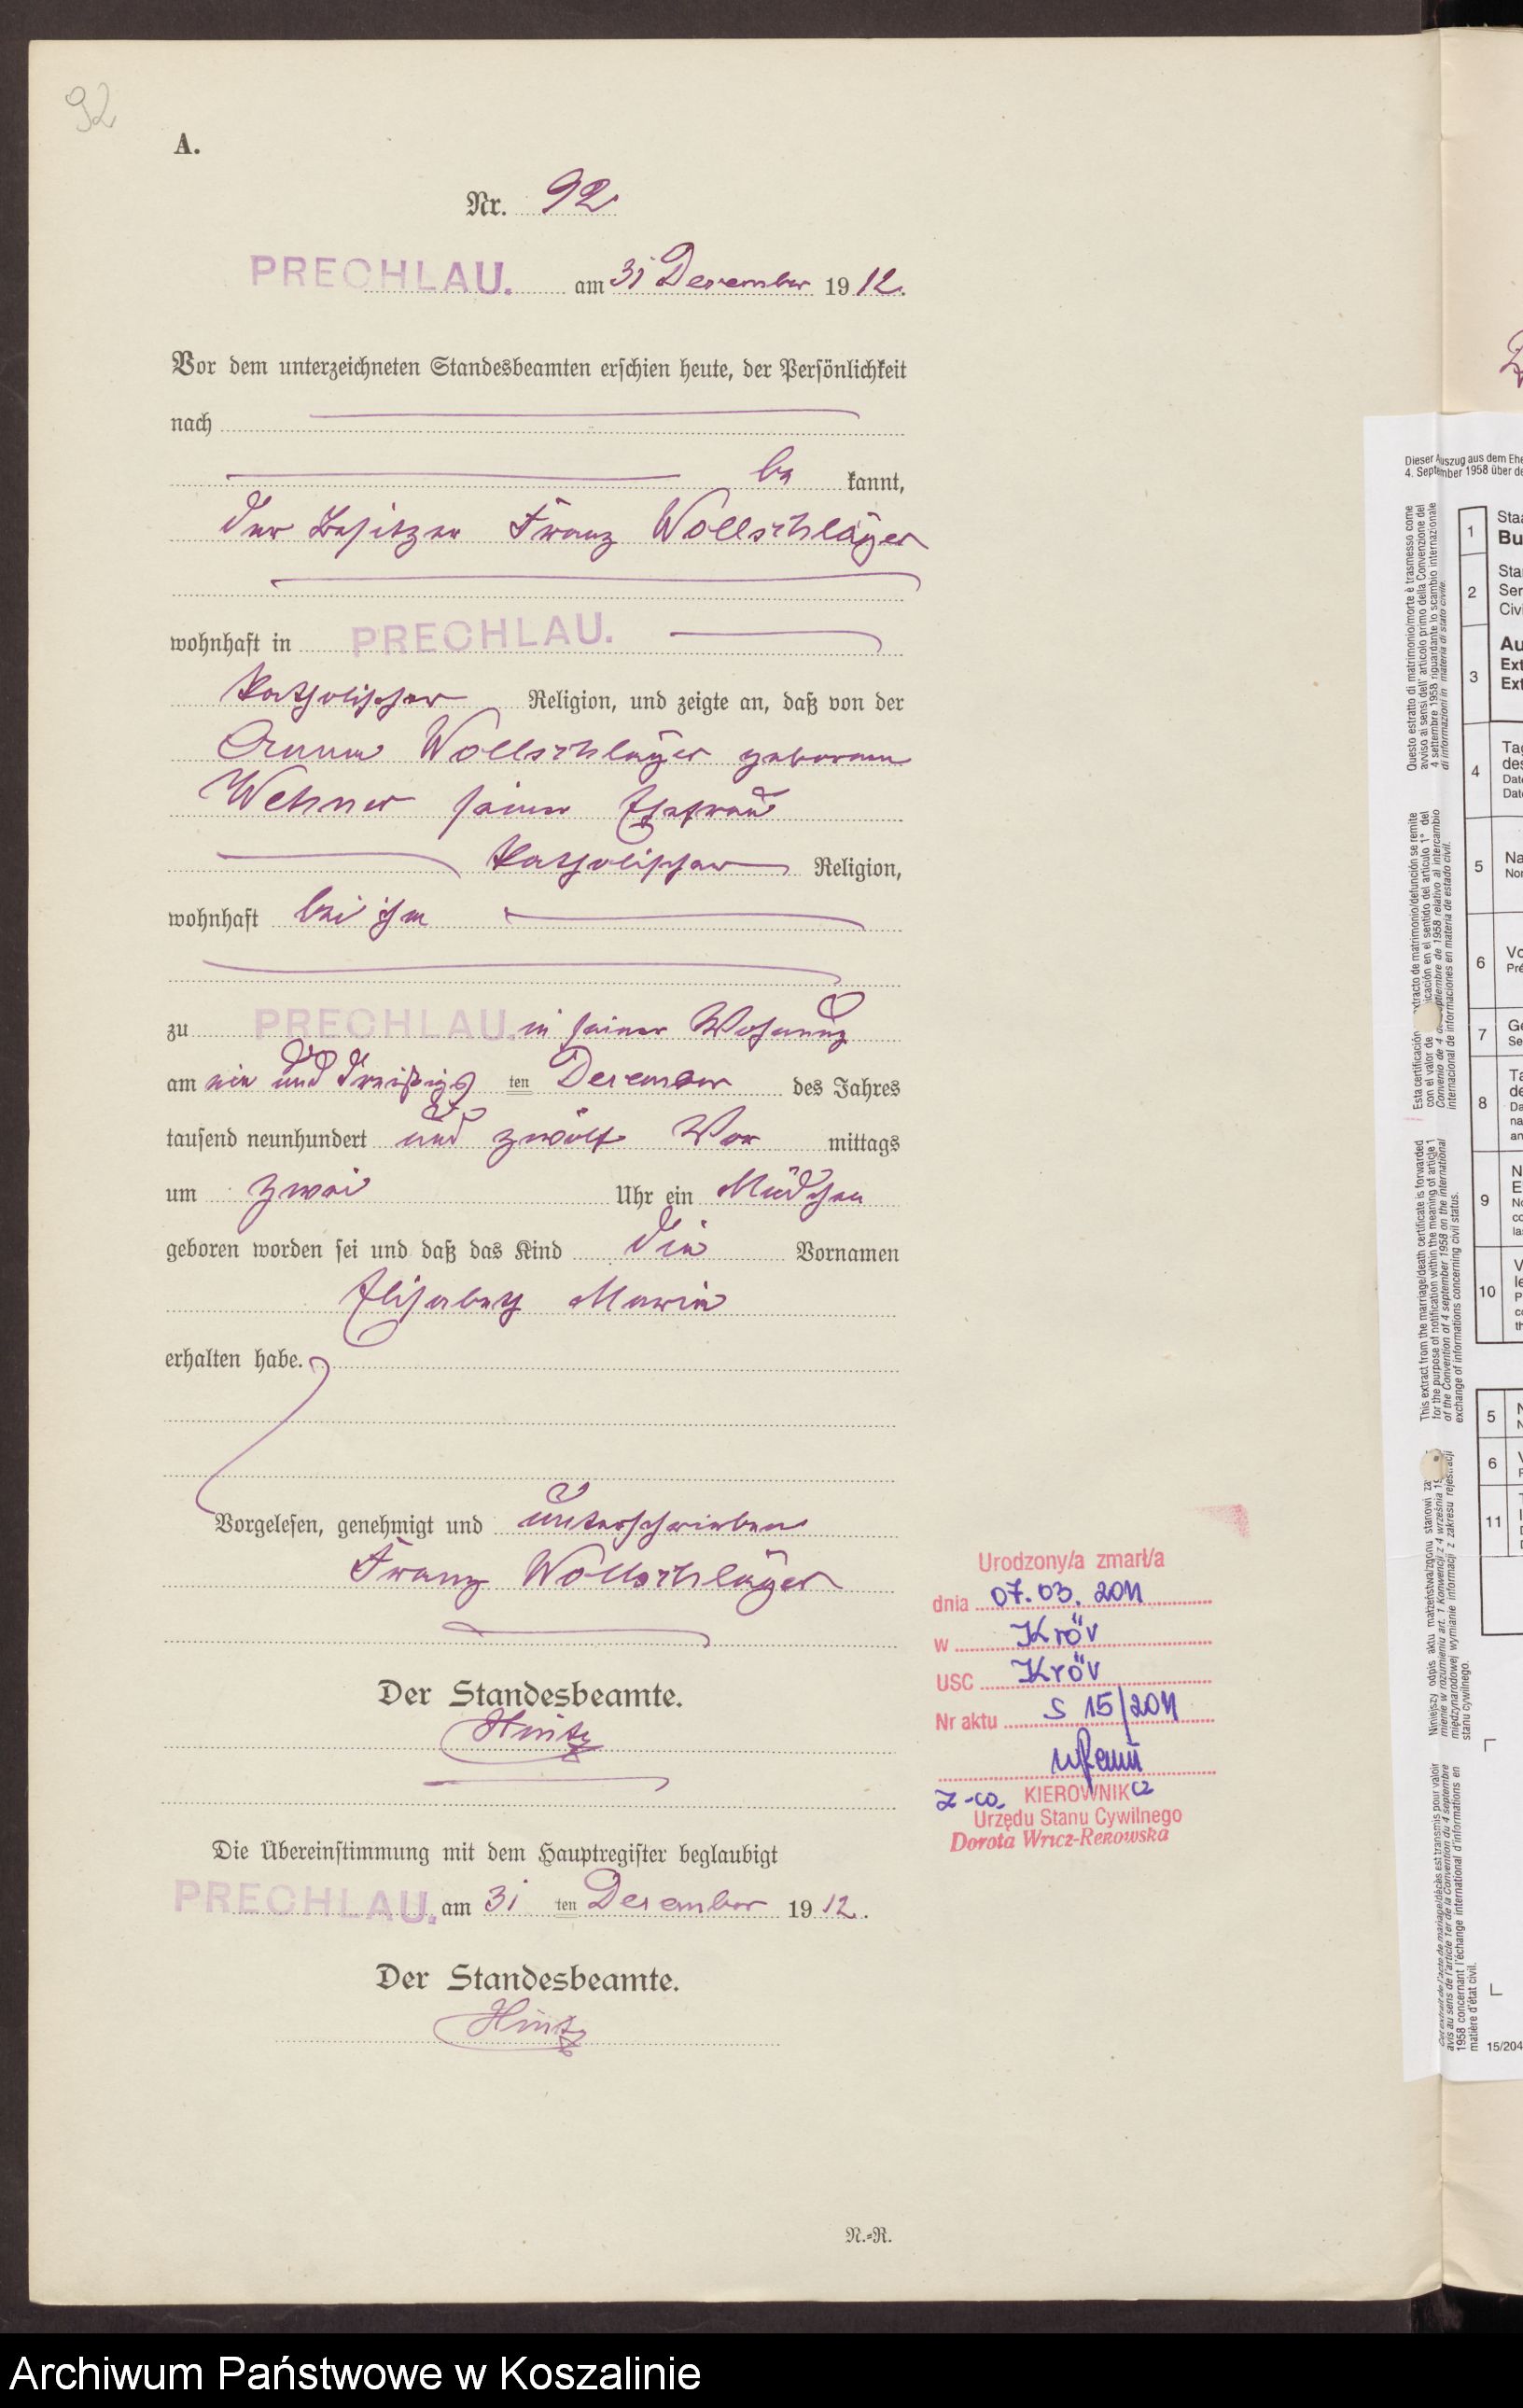 92
A.
Nr. 92
PRECHLAU. am 31 Dezember 1912.
Vor dem unterzeichneten Standesbeamten erschien heute, der Persönlichkeit
nach
be kannt,
der Besitzer Franz Wollschläger
wohnhaft in PRECHLAU.
katholischer Religion, und zeigte an, daß von der
Anna Wollschläger geborene
Wehner seiner Ehefrau
katholischer Religion,
wohnhaft bei ihm
zu PRECHLAU. in seiner Wohnung
am ein und dreißigs ten Dezember des Jahres
tausend neunhundert und zwölf Vor mittags
um zwei Uhr ein Mädchen
geboren worden sei und daß das Kind die Vornamen
Elisabeth Maria
erhalten habe.
Vorgelesen, genehmigt und unterschrieben
Franz Wollschläger
Der Standesbeamte.
Hintz
Die Übereinstimmung mit dem Hauptregister beglaubigt
PRECHLAU. am 31 ten Dezember 1912.
Der Standesbeamte.
Hintz
N.=R.
Urodzony/a zmarł/a
dnia 07.03.2011
w Kröv
USC Kröv
Nr aktu S 15/2011
Z-ca KIEROWNIKA
Urzędu Stanu Cywilnego
Dorota Wricz-Rekowska
Dieser Auszug aus dem Ehe
4. September 1958 über de
Questo estratto di matrimonio/morte è trasmesso come
avviso ai sensi dell'articolo primo della Convenzione del
4 settembre 1958 riguardante lo scambio internazionale
di informazioni in materia di stato civile.
matrimonio/defunción se remite
en el sentido del artículo 1° del
de 1958 relativo al intercambio
internacional de informaciones en materia de estado civil.
This extract from the marriage/death certificate is forwarded
for the purpose of notification within the meaning of article 1
of the Convention of 4 september 1958 on the international
exchange of informations concerning civil status.
Niniejszy odpis aktu małżeństwa/zgonu stanowi
mienie w rozumieniu art. 1 Konwencji z 4 września
międzynarodowej wymianie informacji z zakresu rejestracji
stanu cywilnego.
Cet extrait de l'acte de mariage/décès est transmis pour valoir
avis au sens de l'article 1er de la Convention du 4 septembre
1958 concernant l'échange international d'informations en
matière d'état civil.
1
Bu
2
3
4
5
6
7
8
9
10
5
6
11
15/204
Archiwum Państwowe w Koszalinie